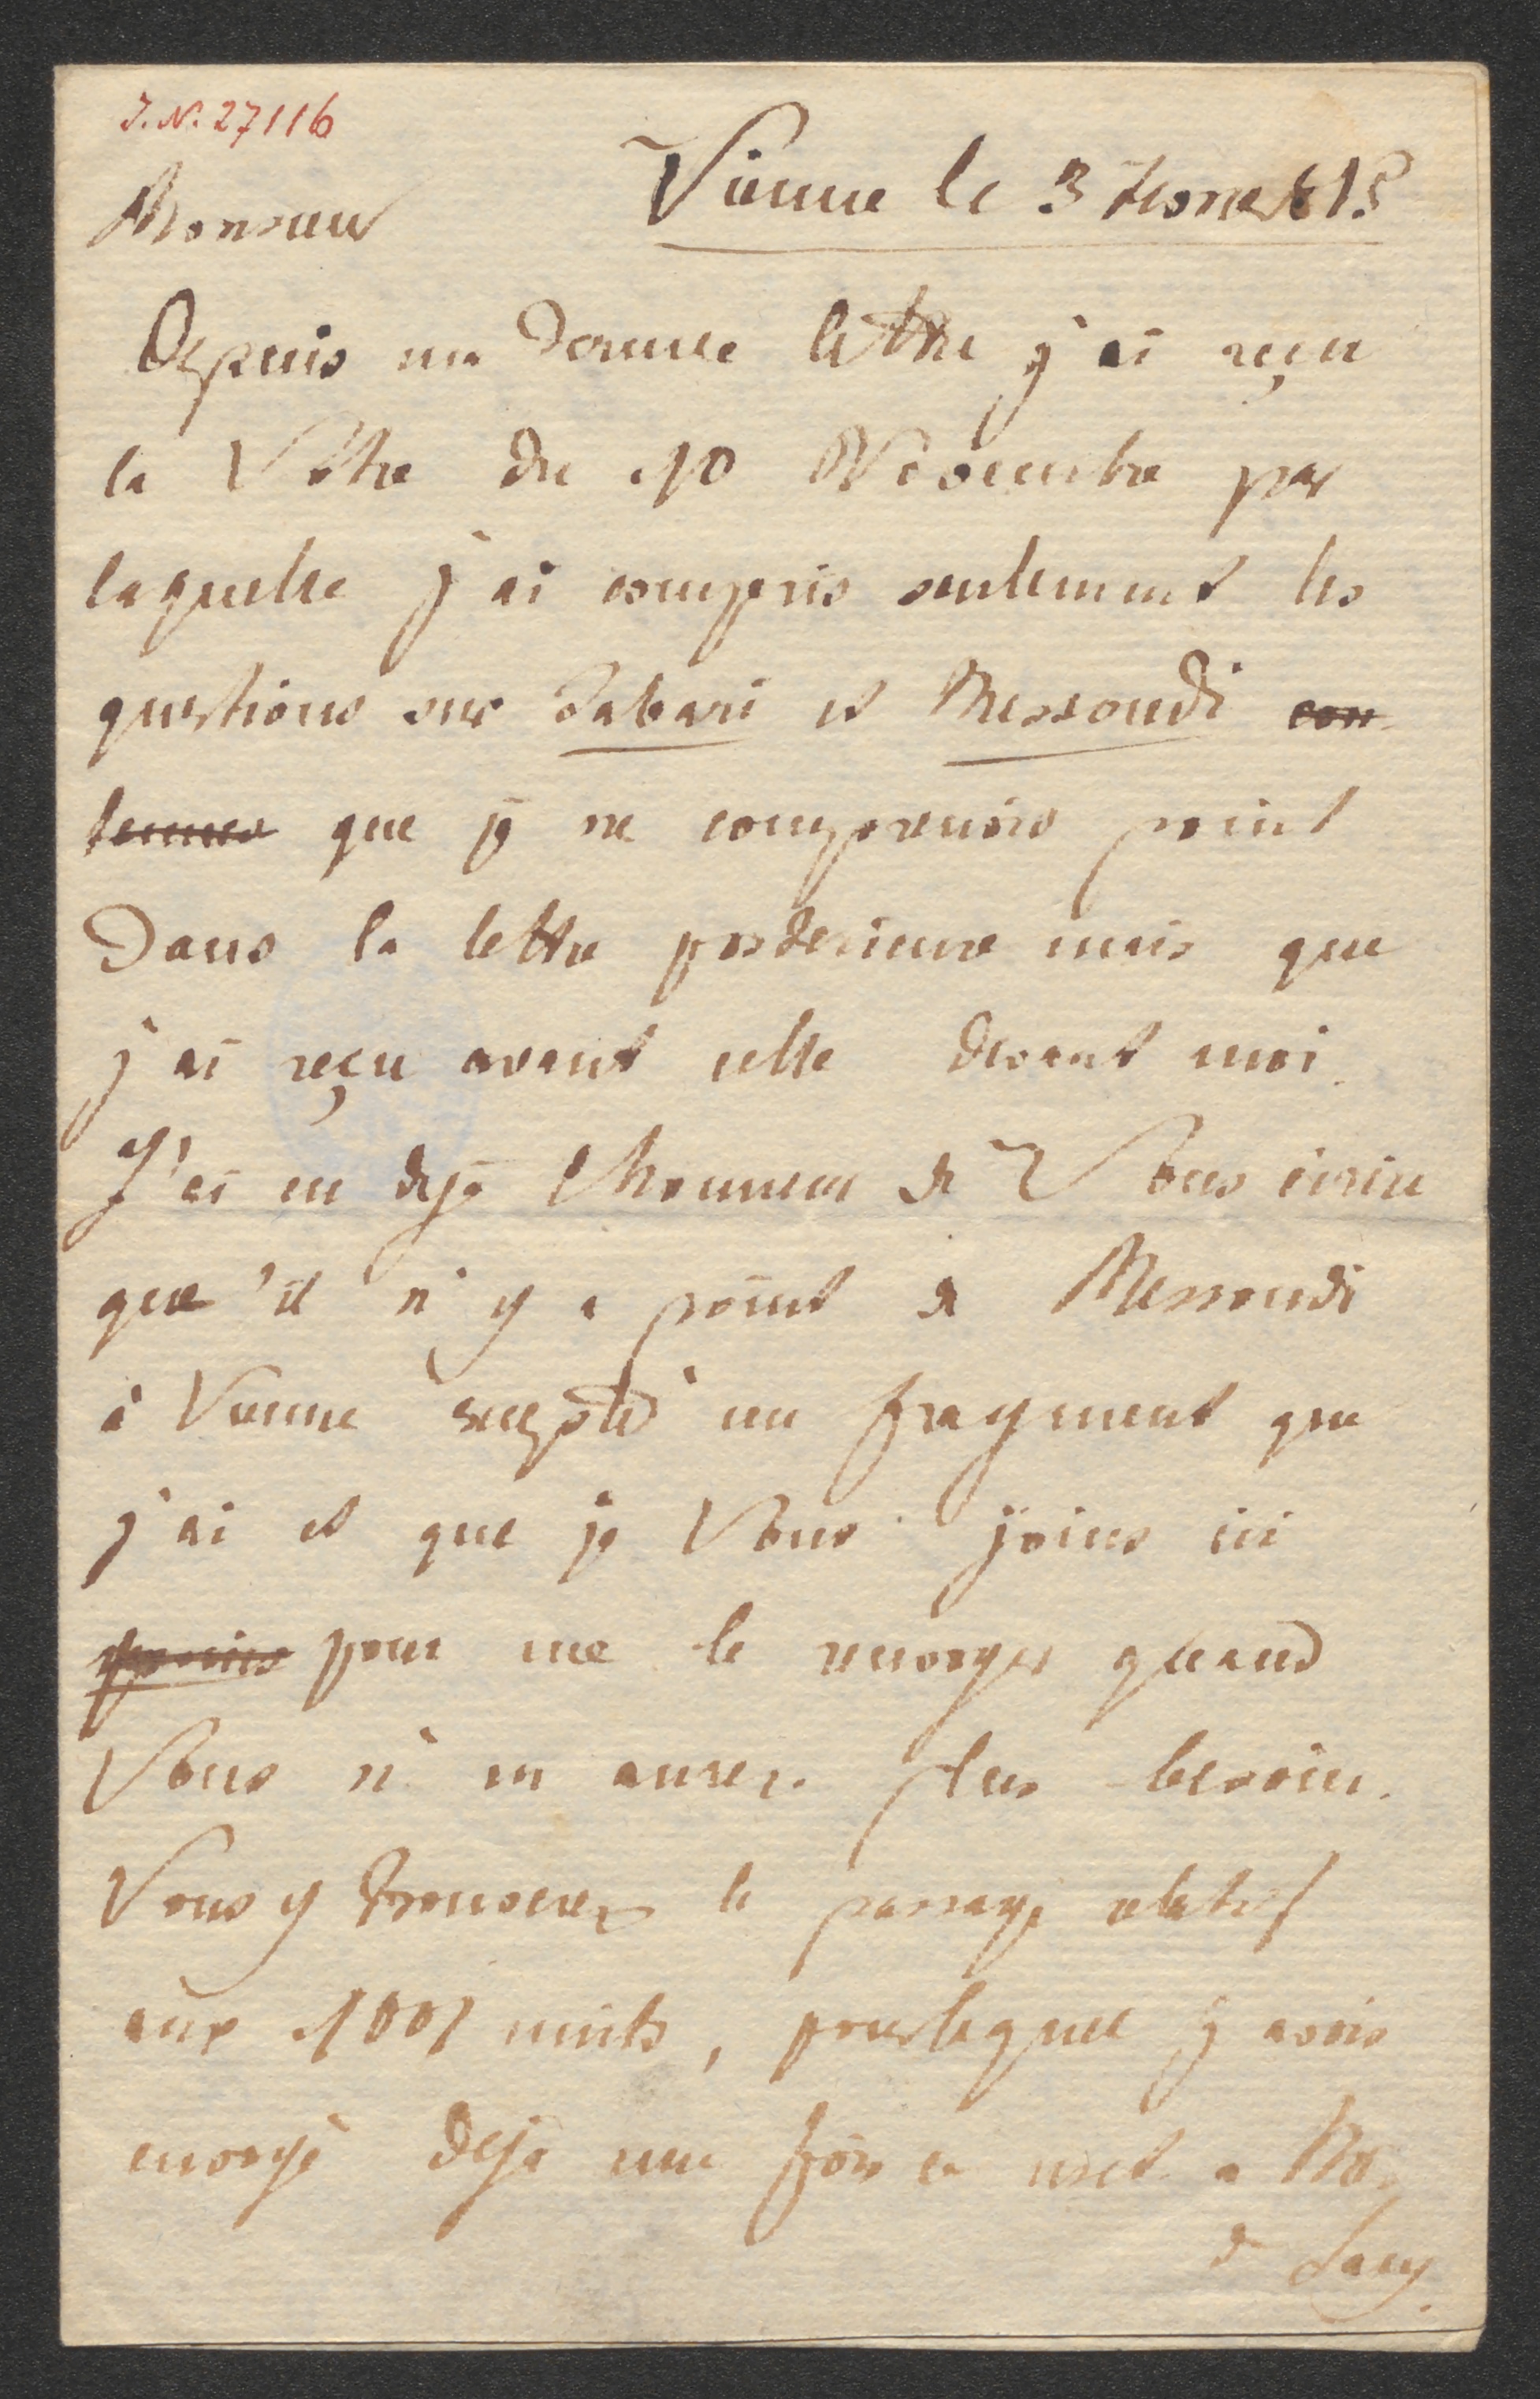 J.N. 27116
Vienne le 3 815
Monsieur
Depuis ma derniere lettre j'ai reçu
la Vôtre du 10 Novembre par
laquelle j'ai compris seulement les
questions sur Tabari et Messoudi con
tenues que je ne comprenois point
dans la lettre posterieure mais que
j'ai reçu avant celle devant moi.
J'ai eu deja l'honneur de Vous ecrire
que'il n'y a point de Messoudi
à Vienne excepté un fragment que
j'ai et que je Vous joins ici
pour me le renvoyer quand
Vous n'en aurez plus besoin.
Vous y trouverez le passage relatif
aux 1001 nuits, pour lequel j'avois
envoyé deja une fois a Mr
de Sacy.